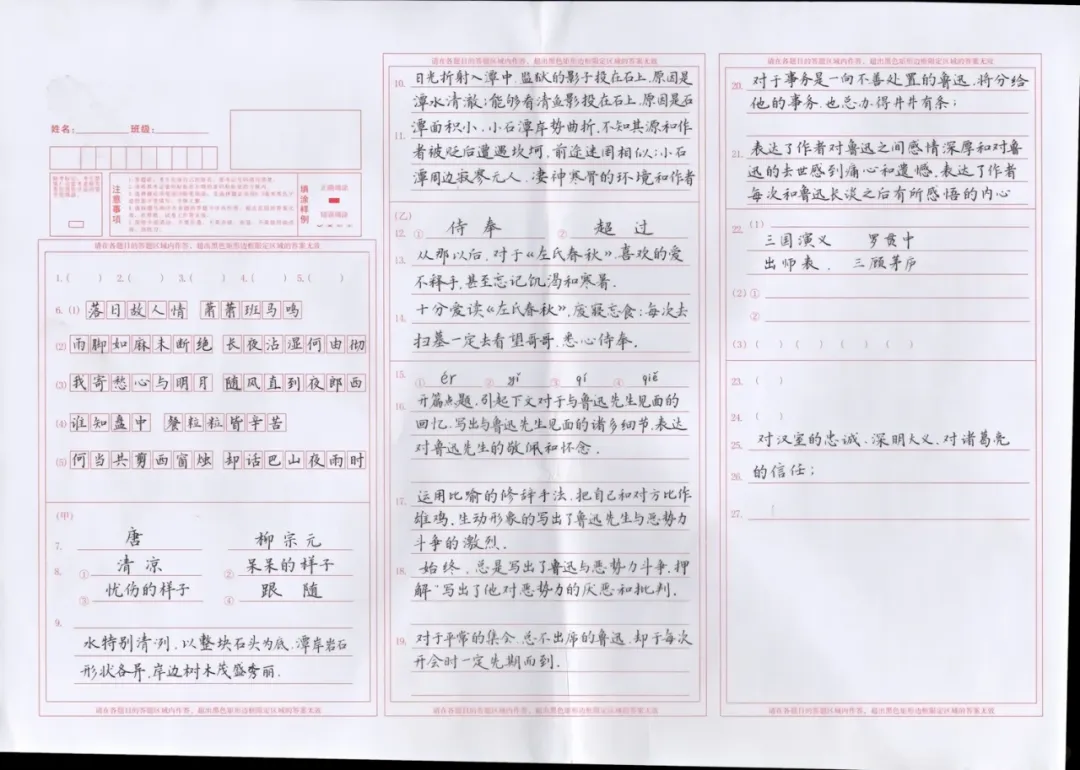 姓名： 班级：
注意事项
填涂样例
正确填涂
错误填涂
请在各题目的答题区域内作答，超出黑色矩形边框限定区域的答案无效
1.( ) 2.( ) 3.( ) 4.( ) 5.( )
6. (1) 落日故人情 萧萧班马鸣
(2) 雨脚如麻未断绝 长夜沾湿何由彻
(3) 我寄愁心与明月 随风直到夜郎西
(4) 谁知盘中 餐粒粒皆辛苦
(5) 何当共剪西窗烛 却话巴山夜雨时
(甲)
7. 唐 柳宗元
8. ① 清凉 ② 呆呆的样子
③ 忧伤的样子 ④ 跟随
9.
水特别清冽，以整块石头为底，潭岸岩石
形状各异，岸边树木茂盛秀丽．
请在各题目的答题区域内作答，超出黑色矩形边框限定区域的答案无效
请在各题目的答题区域内作答，超出黑色矩形边框限定区域的答案无效
10. 日光折射入潭中，监狱的影子投在石上，原因是
潭水清澈；能够看清鱼影投在石上，原因是石
11. 潭面积小．小石潭岸势曲折，不知其源和作
者被贬后遭遇坎坷，前途迷罔相似；小石
潭周边寂寥无人．凄神寒骨的环境和作者
(乙)
12. ① 侍奉 ② 超过
13. 从那以后，对于《左氏春秋》，喜欢的爱
不释手，甚至忘记饥渴和寒暑．
14. 十分爱读《左氏春秋》，废寝忘食；每次去
扫墓一定去看望哥哥，悉心侍奉．
15. ① ér ② yí ③ qí ④ qiè
16. 开篇点题，引起下文对于与鲁迅先生见面的
回忆，写出与鲁迅先生见面的诸多细节，表达
对鲁迅先生的敬佩和怀念．
17. 运用比喻的修辞手法，把自己和对方比作
雄鸡，生动形象的写出了鲁迅先生与恶势力
斗争的激烈．
18. 始终、总是写出了鲁迅与恶势力斗争，押
解"写出了他对恶势力的厌恶和批判．
19. 对于平常的集会，总不出席的鲁迅，却于每次
开会时一定先期而到．
请在各题目的答题区域内作答，超出黑色矩形边框限定区域的答案无效
请在各题目的答题区域内作答，超出黑色矩形边框限定区域的答案无效
20. 对于事务是一向不善处置的鲁迅，将分给
他的事务，也总办得井井有条；
21. 表达了作者对鲁迅之间感情深厚和对鲁
迅的去世感到痛心和遗憾，表达了作者
每次和鲁迅长谈之后有所感悟的内心
22. (1)
三国演义 罗贯中
出师表． 三顾茅庐
(2) ①
②
(3) ( ) ( ) ( ) ( )
23. ( )
24. ( )
25. 对汉室的忠诚、深明大义、对诸葛亮
26. 的信任；
27.
请在各题目的答题区域内作答，超出黑色矩形边框限定区域的答案无效